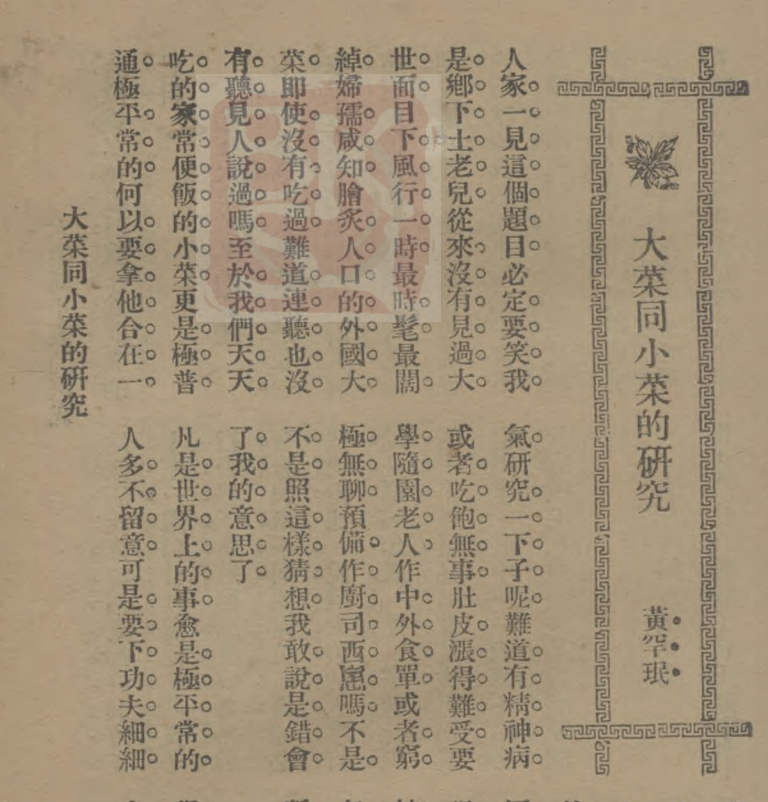 大菜同小菜的硏究
黃罕珉
人家一見這個題目必定要笑我
是鄉下土老兒從來沒有見過大
世面目下風行一時最時髦最闊
綽婦孺咸知膾炙人口的外國大
菜即使沒有吃過難道連聽也沒
有聽見人說過嗎至於我們天天
吃的家常便飯的小菜更是極普
通極平常的何以要拿他合在一
氣硏究一下子呢難道有精神病
或者吃飽無事肚皮漲得難受要
學隨園老人作中外食單或者窮
極無聊預備作廚司西崽嗎不是
不是照這樣猜想我敢說是錯會
了我的意思了
凡是世界上的事愈是極平常的
人多不留意可是要下功夫細細
大菜同小菜的硏究